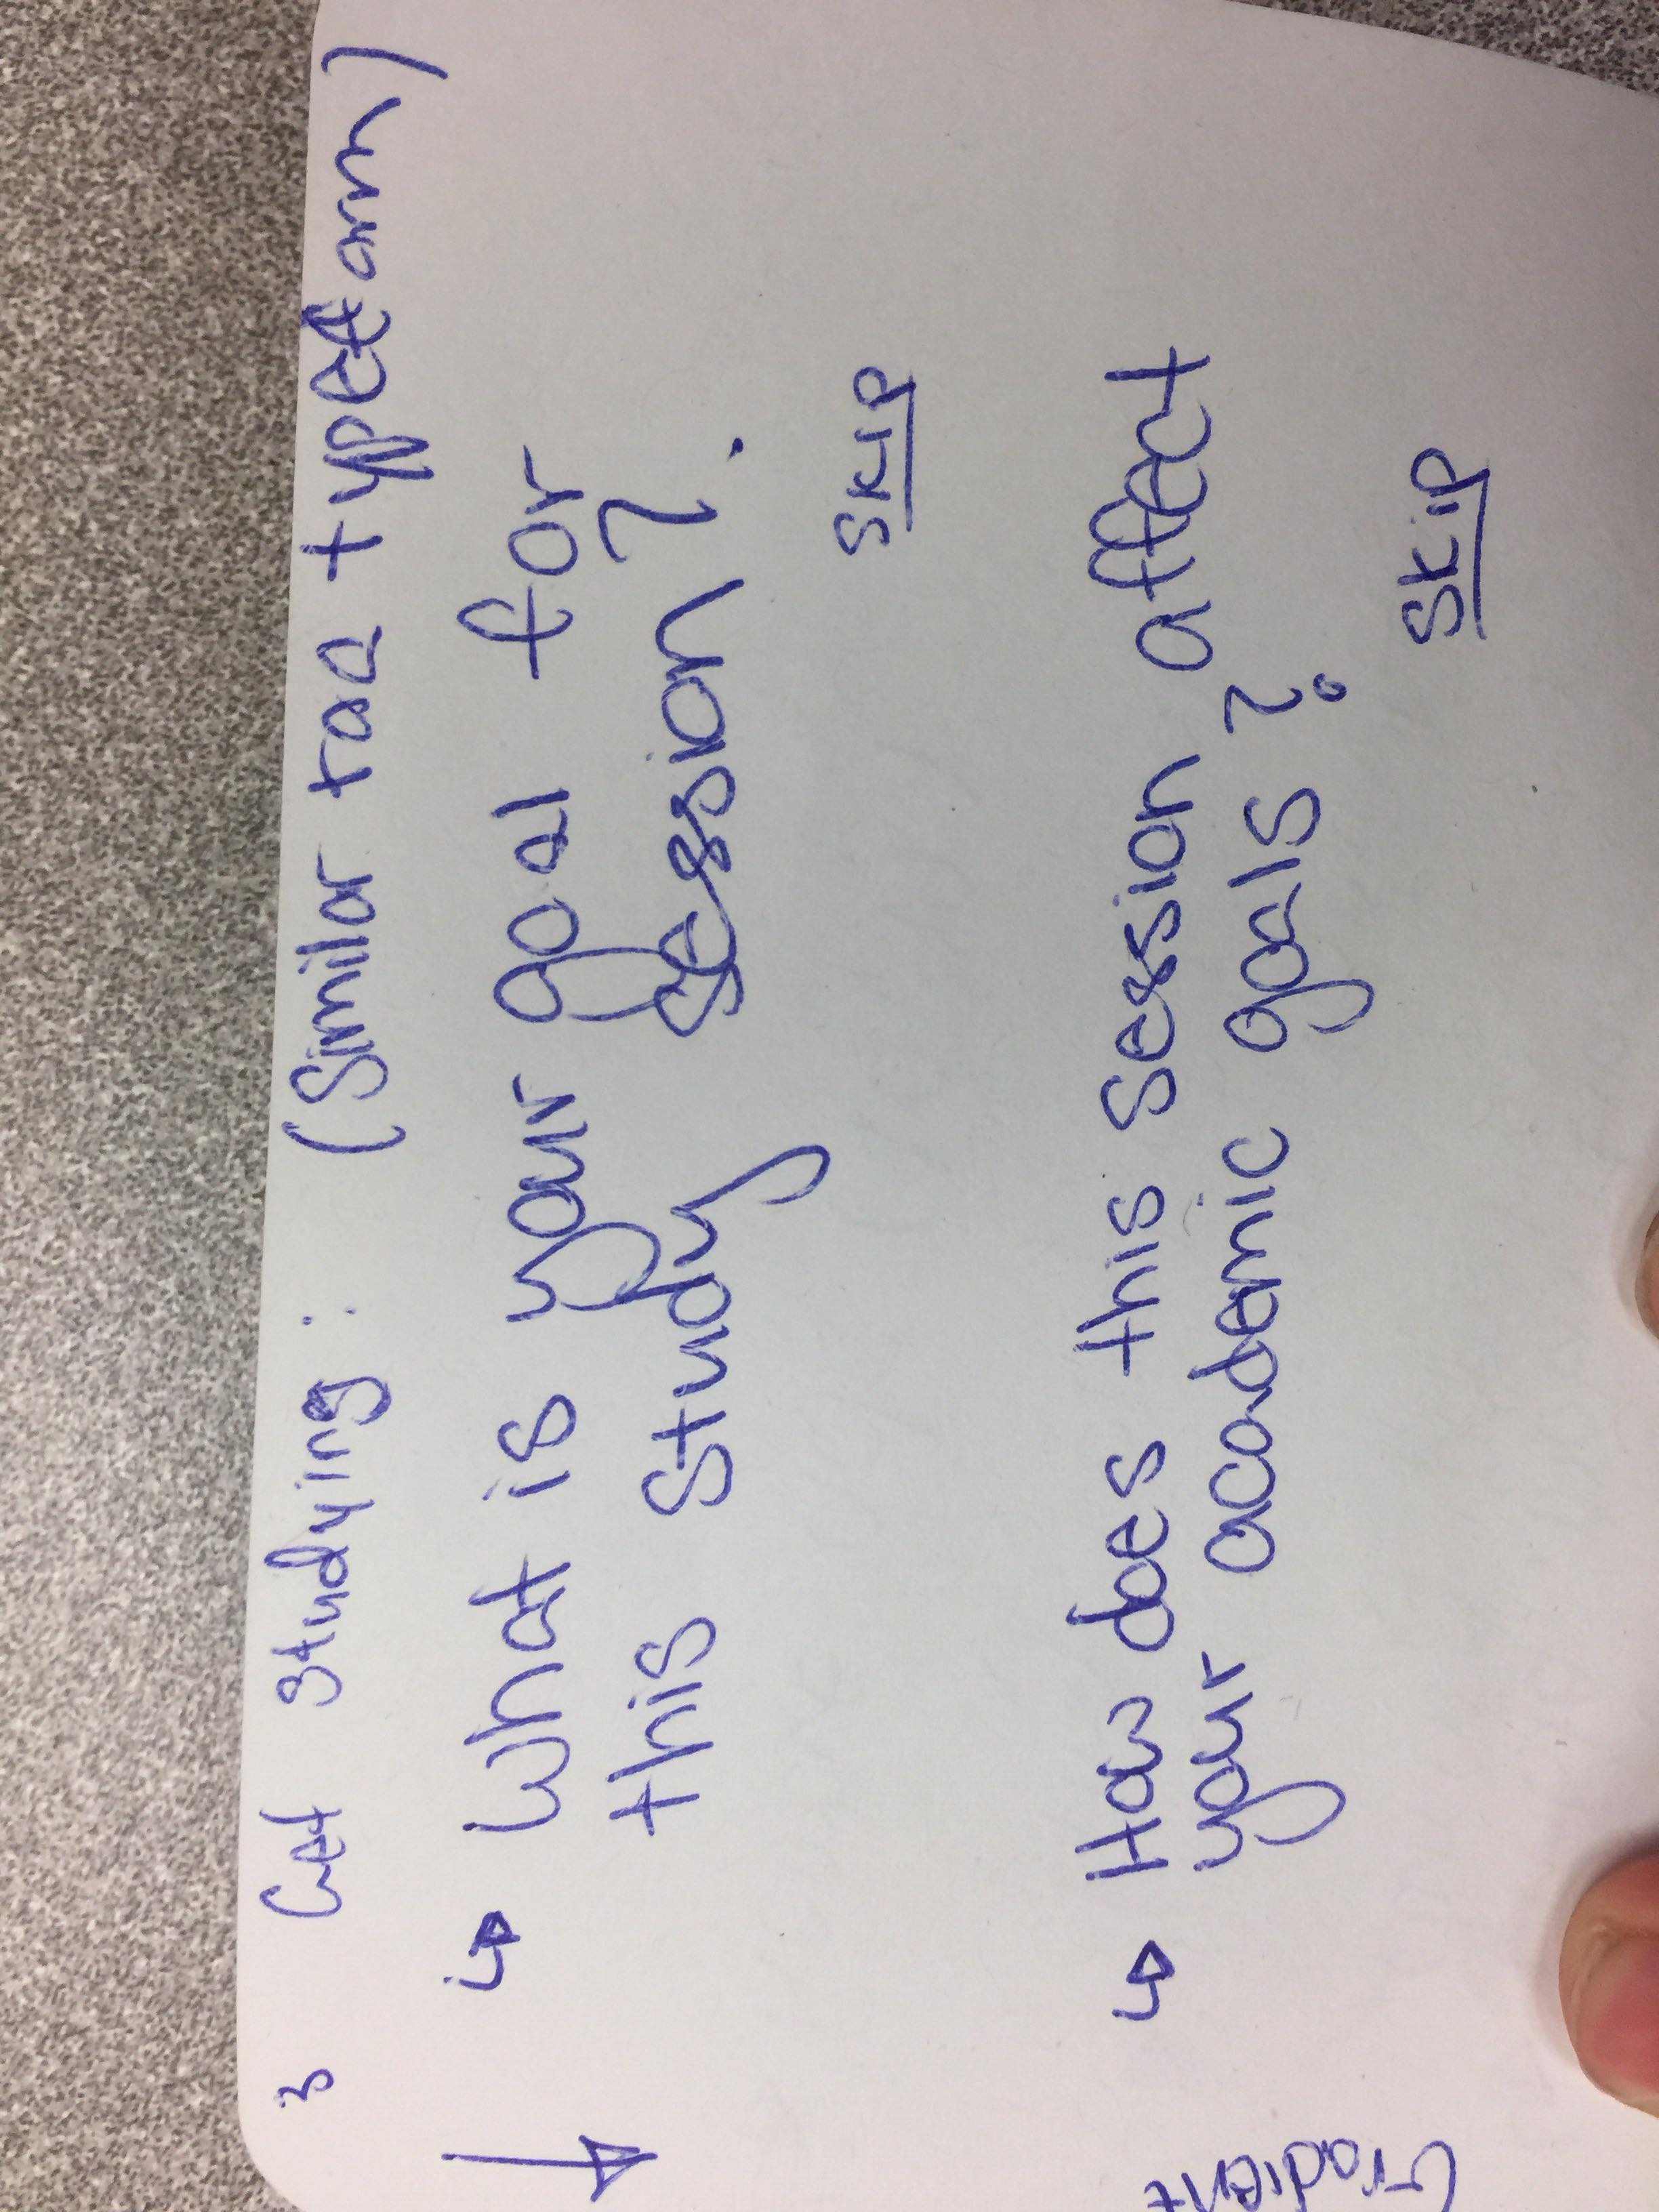 3 Get studying: (Similar to a typeform)
↳ What is your goal for
this study session?
Skip
↳ How does this session affect
your academic goals?
Skip
Gradient